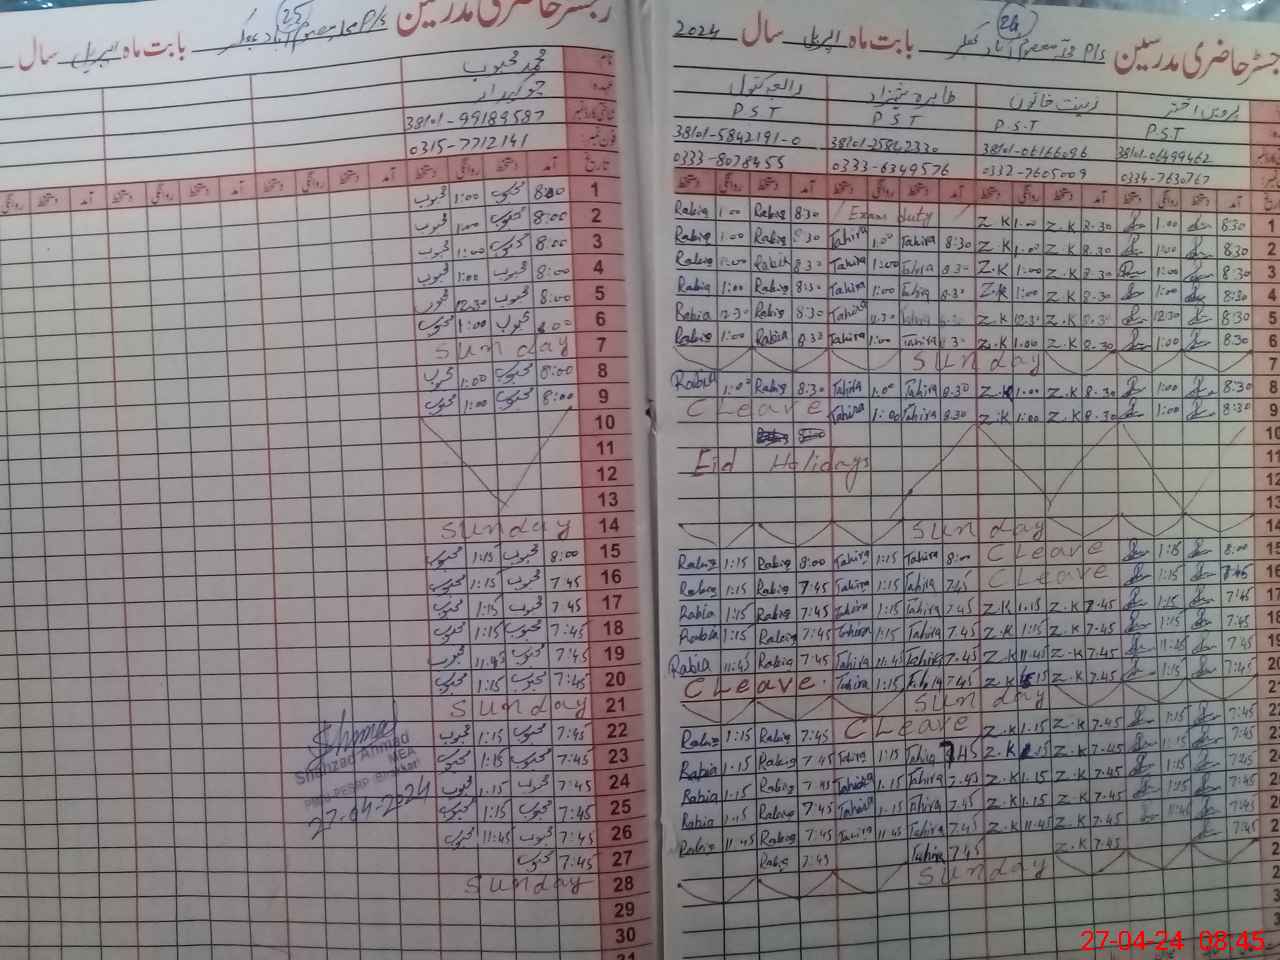 رجسٹر حاضری مدرسین بابت ماہ اپریل سال
25
P/s
محمد محبوب
چوکیدار
38101-99189587
0315-7712141
تاریخ آمد دستخط روانگی دستخط آمد دستخط روانگی دستخط آمد دستخط روانگی دستخط
1 8:00 محبوب 1:00 محبوب
2 8:00 محبوب 1:00 محبوب
3 8:00 محبوب 1:00 محبوب
4 8:00 محبوب 1:00 محبوب
5 8:00 محبوب 12:30 محبوب
6 8:00 محبوب 1:00 محبوب
7 Sunday
8 8:00 محبوب 1:00 محبوب
9 8:00 محبوب 1:00 محبوب
10
11
12
13
14 Sunday
15 8:00 محبوب 1:15 محبوب
16 7:45 محبوب 1:15 محبوب
17 7:45 محبوب 1:15 محبوب
18 7:45 محبوب 1:15 محبوب
19 7:45 محبوب 11:45 محبوب
20 7:45 محبوب 1:15 محبوب
21 Sunday
22 7:45 محبوب 1:15 محبوب
23 7:45 محبوب 1:15 محبوب
24 7:45 محبوب 1:15 محبوب
25 7:45 محبوب 1:15 محبوب
26 7:45 محبوب 11:45 محبوب
27 7:45 محبوب
28 Sunday
29
30
31
Shahzad Ahmad
MEA
27-04-2024
رجسٹر حاضری مدرسین بابت ماہ اپریل سال 2024
24
P/s
رابعہ بتول طاہرہ شہزاد زینت خاتون پروین اختر
P.S.T P.S.T P.S.T P.S.T
38101-5842191-0 38101-25842330 38101-06166096 38101-06499462
0333-8078455 0333-6349576 0332-7605009 0334-7630767
Rabia 1:00 Rabia 8:30 Exam duty Z.K 1:00 Z.K 8:30 1:00 8:30 1
Rabia 1:00 Rabia 8:30 Tahira 1:00 Tahira 8:30 Z.K 1:00 Z.K 8:30 1:00 8:30 2
Rabia 1:00 Rabia 8:30 Tahira 1:00 Tahira 8:30 Z.K 1:00 Z.K 8:30 1:00 8:30 3
Rabia 1:00 Rabia 8:30 Tahira 1:00 Tahira 8:30 Z.K 1:00 Z.K 8:30 1:00 8:30 4
Rabia 12:30 Rabia 8:30 Tahira 12:30 Tahira 8:30 Z.K 12:30 Z.K 8:30 12:30 8:30 5
Rabia 1:00 Rabia 8:30 Tahira 1:00 Tahira 8:30 Z.K 1:00 Z.K 8:30 1:00 8:30 6
Sunday 7
Rabia 1:00 Rabia 8:30 Tahira 1:00 Tahira 8:30 Z.K 1:00 Z.K 8:30 1:00 8:30 8
C Leave Tahira 1:00 Tahira 8:30 Z.K 1:00 Z.K 8:30 1:00 8:30 9
10
Eid Holidays 11
12
13
Sunday 14
Rabia 1:15 Rabia 8:00 Tahira 1:15 Tahira 8:00 C Leave 1:15 8:00 15
Rabia 1:15 Rabia 7:45 Tahira 1:15 Tahira 7:45 C Leave 1:15 7:45 16
Rabia 1:15 Rabia 7:45 Tahira 1:15 Tahira 7:45 Z.K 1:15 Z.K 7:45 1:15 7:45 17
Rabia 1:15 Rabia 7:45 Tahira 1:15 Tahira 7:45 Z.K 1:15 Z.K 7:45 1:15 7:45 18
Rabia 11:45 Rabia 7:45 Tahira 11:45 Tahira 7:45 Z.K 11:45 Z.K 7:45 11:45 7:45 19
C Leave Tahira 1:15 Tahira 7:45 Z.K 1:15 Z.K 7:45 1:15 7:45
Sunday
Rabia 1:15 Rabia 7:45 C Leave Z.K 1:15 Z.K 7:45 1:15 7:45
Rabia 1:15 Rabia 7:45 Tahira 1:15 Tahira 7:45 Z.K 1:15 Z.K 7:45 1:15 7:45
Rabia 1:15 Rabia 7:45 Tahira 1:15 Tahira 7:45 Z.K 1:15 Z.K 7:45 1:15 7:45
Rabia 1:15 Rabia 7:45 Tahira 1:15 Tahira 7:45 Z.K 1:15 Z.K 7:45 1:15 7:45
Rabia 11:45 Rabia 7:45 Tahira 11:45 Tahira 7:45 Z.K 11:45 Z.K 7:45 11:45 7:45
Rabia 7:45 Tahira 7:45 Z.K 7:45 7:45
Sunday
27-04-24 08:45